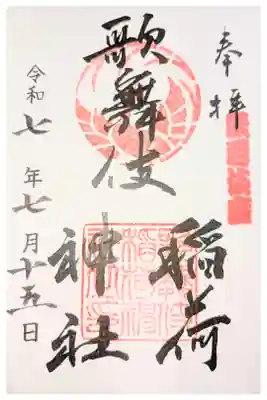 奉拝
歌舞伎
稲荷
神社
令和七年七月十五日